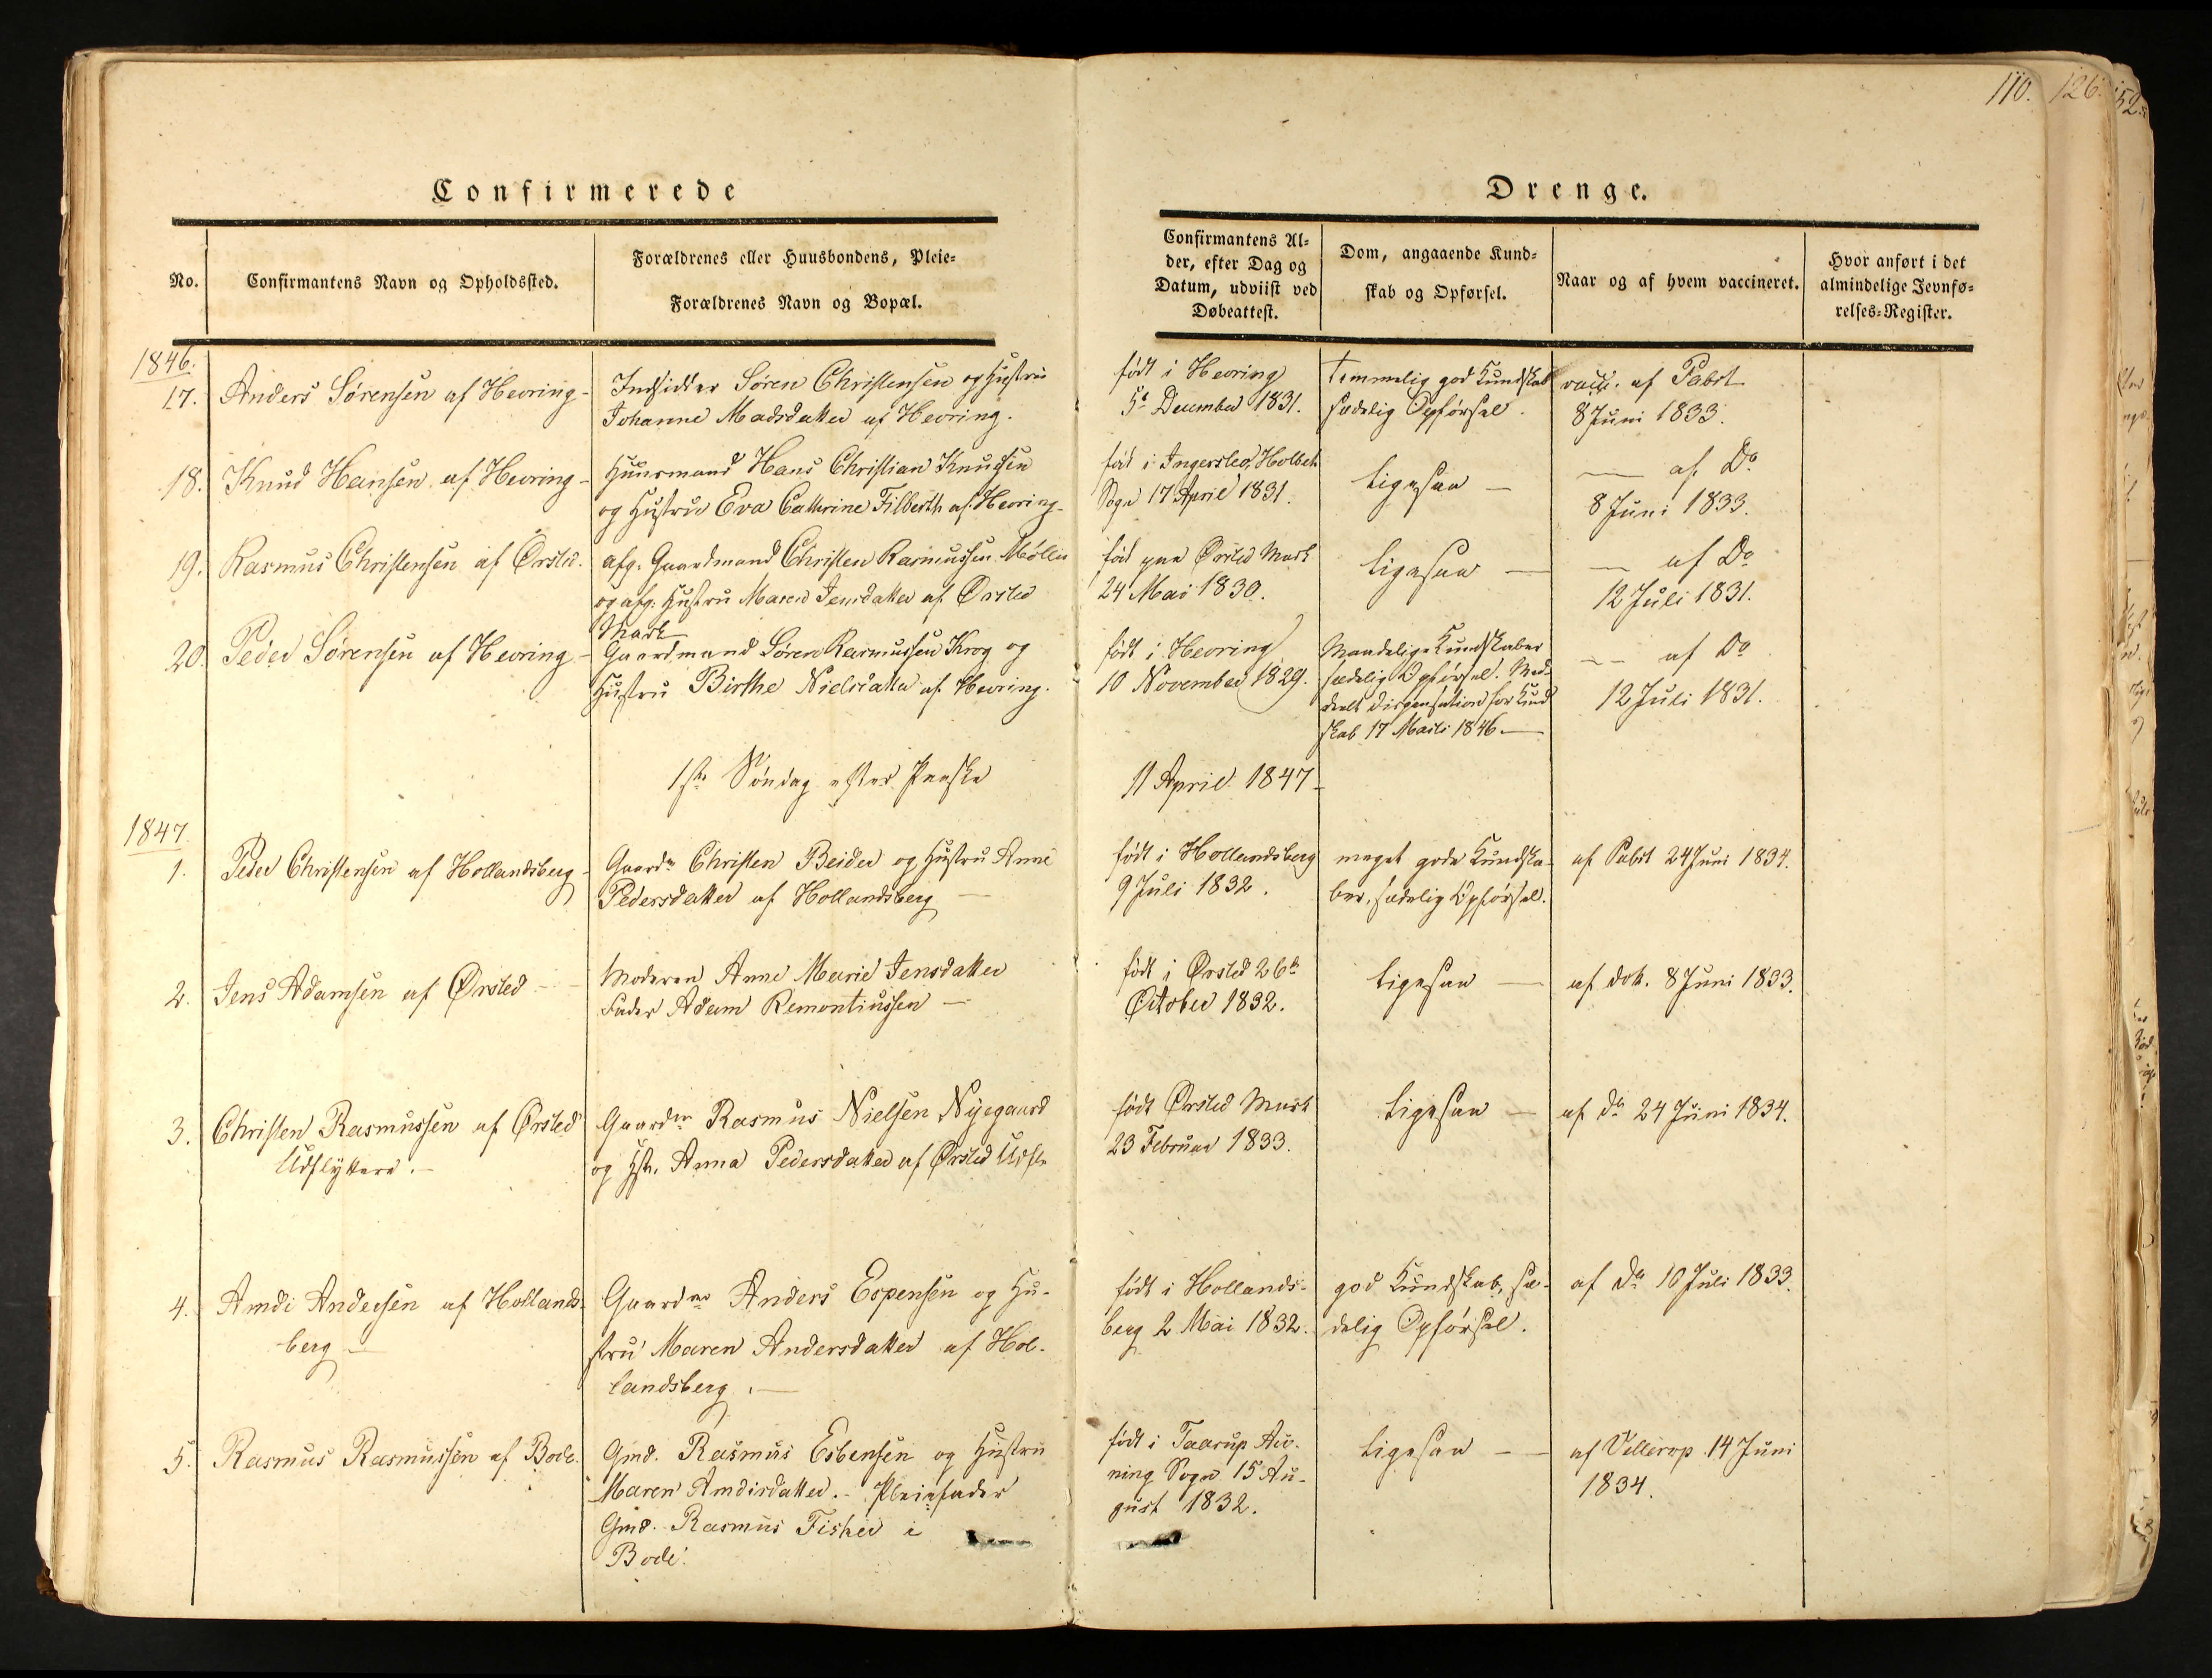 110.
126.
152.
Confirmerede
Drenge.
No.
Confirmantens Navn og Opholdssted.
Forældrenes eller Huusbondens, Pleie=
Forældrenes Navn og Bopæl.
Confirmantens Al=
der, efter Dag og
Datum, udviist ved
Døbeattest.
Dom, angaaende Kund=
skab og Opførsel.
Naar og af hvem vaccineret.
Hvor anført i det
almindelige Jevnfø=
relses=Register.
1846.
17.
Anders Sørensen af Hevring -
Indsidder Søren Christensen og Hustru
Johanne Madsdatter af Hevring.
født i Hevring
5te December 1831.
temmelig god Kundskab
sædelig Opførsel.
vacc. af Pabst
8 Juni 1833.
18.
Knud Hansen af Hevring -
Huusmand Hans Christian Knudsen
og Hustru Eva Cathrine Filberth af Hevring -
født i Ingerslev, Holbek
Sogn 17 April 1831.
ligesaa —
— af Do
8 Juni 1833.
19.
Rasmus Christensen af Ørsted.
afg. Gaardmand Christen Rasmussen Møller
og afg. Hustru Maren Jensdatter af Ørsted
Mark
født paa Ørsted Mark
24 Mai 1830.
ligesaa —
— af Do
12 Juli 1831.
20.
Peder Sørensen af Hevring -
Gaardmand Søren Rasmussen Krog og
Hustru Birthe Nielsdatter af Hevring.
født i Hevring
10 November 1829.
Maadelige Kundskaber
sædelig Opførsel. Med-
deelt Dispensation for Kund
skab 17 Marts 1846. —
— af Do
12 Juli 1831.
1ste Søndag efter Paaske
11 April 1847 -
1847.
1.
Peder Christensen af Hollandsberg -
Gaardm Christen Beider og Hustru Anne
Pedersdatter af Hollandsberg —
født i Hollandsberg
9 Juli 1832.
meget gode Kundska-
ber, sædelig Opførsel.
af Pabst 24 Juni 1834.
2.
Jens Adamsen af Ørsted - -
Moderen Anne Marie Jensdatter
Fader Adam Remontiussen —
født i Ørsted 26de
October 1832.
ligesaa —
af dito. 8 Juni 1833.
3.
Christen Rasmussen af Ørsted
Udflyttere. -
Gaardm Rasmus Nielsen Nyegaard
og Hstr. Anna Pedersdatter af Ørsted Udfl.
født Ørsted Mark
23 Februar 1833.
ligesaa —
af Do 24 Juni 1834.
4.
Amdi Andersen af Hollands-
berg —
Gaardm Anders Espensen og Hu-
stru Maren Andersdatter af Hol-
landsberg. —
født i Hollands-
berg 2 Mai 1832.
god Kundskab, sæ-
delig Opførsel.
af Do 10 Juli 1833.
5.
Rasmus Rasmussen af Bode.
Gmd. Rasmus Esbensen og Hustru
Maren Amdisdatter. - Pleiefader
Gmd. Rasmus Fisker i
Bode.
født i Taarup Au-
ning Sogn 15 Au-
gust 1832.
ligesaa — —
af Vellerop 14 Juni
1834.